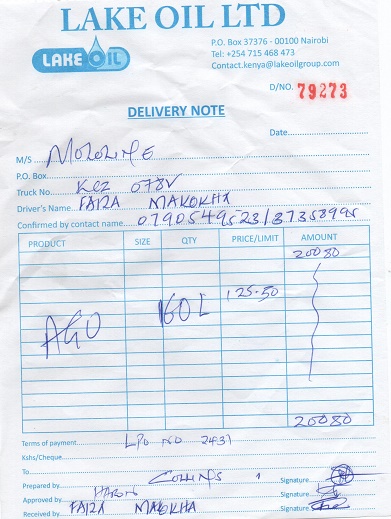 LAKE OIL LTD
LAKE OIL
P.O. Box 37376 - 00100 Nairobi
Tel: +254 715 468 473
Contact.kenya@lakeoilgroup.com
D/NO. 79273
DELIVERY NOTE
Date
M/S MOLOLINE
P.O. Box
Truck No. KCZ 078V
Driver's Name FAIZA MAKOKHA
Confirmed by contact name 0790549523/
PRODUCT SIZE QTY PRICE/LIMIT AMOUNT
20080
AGO 160L 125.50
20080
Terms of payment LPO NO 2431
Kshs/Cheque
To
Prepared by COLLINS Signature
Approved by Signature
Received by FAIZA MAKOKHA Signature